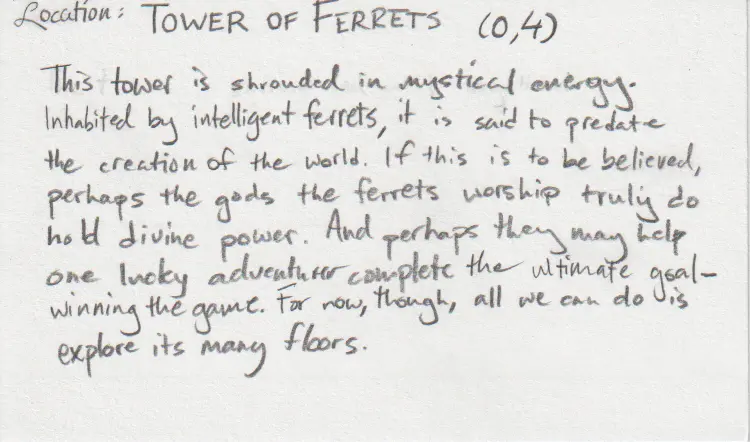 Location: TOWER OF FERRETS (0,4)
This tower is shrouded in mystical energy.
Inhabited by intelligent ferrets, it is said to predate
the creation of the world. If this is to be believed,
perhaps the gods the ferrets worship truly do
hold divine power. And perhaps they may help
one lucky adventurer complete the ultimate goal-
winning the game. For now, though, all we can do is
explore its many floors.